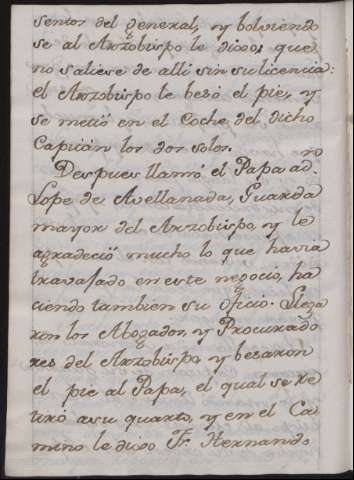 sentor del general, y bolviendo
se al Arzobispo le dixo, que
no saliese de alli sin su licencia:
el Arzobispo le besó el pie, y
se metió en el Coche del dicho
Capitan los dos solos.
Despues llamó el Papa a dn.
Lope de Avellanada, Guarda
mayor del Arzobispo, y le
agradeció mucho lo que havia
travasado en este negocio, ha
ciendo tambien su oficio. Llega
ron los Abogados, y Procurado
res del Arzobispo y besaron
el pie al Papa, el qual se re
tiró a su quarto, y en el Ca
mino le dixo Fr. Hernando